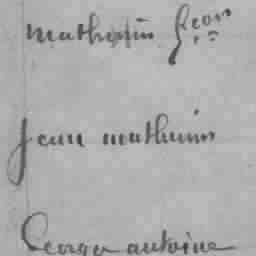 mathurin Leon
Jean mathurin
George antoine